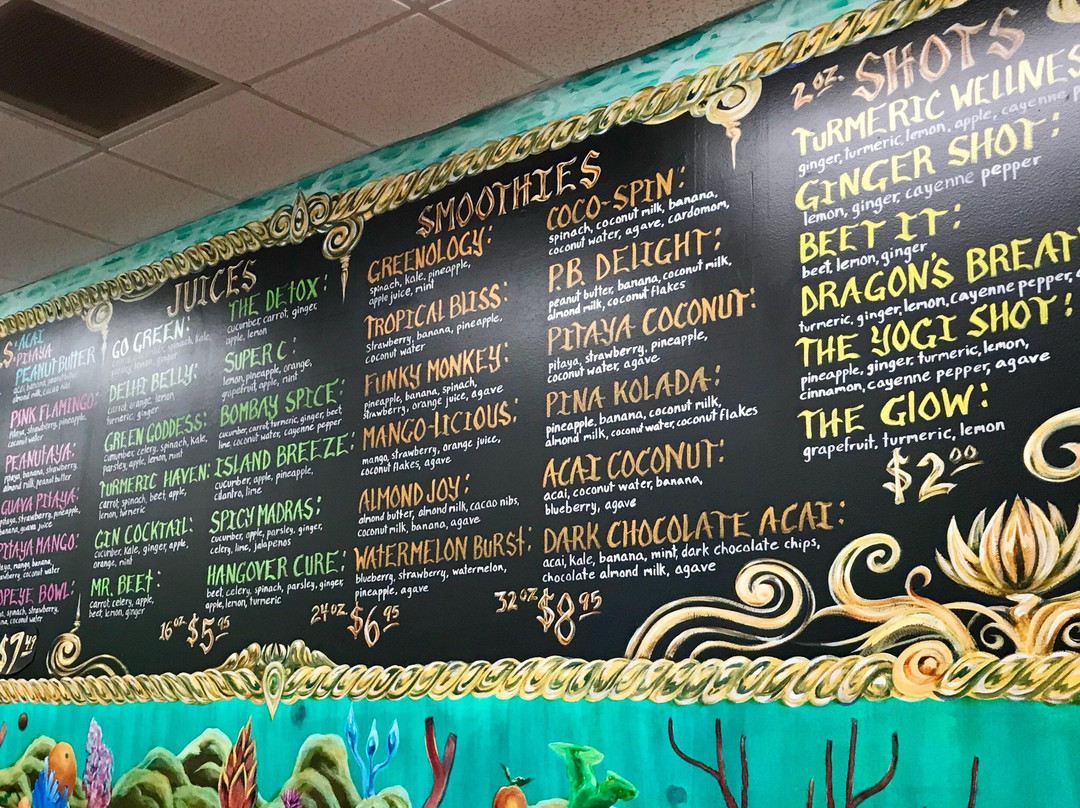 ACAI
PITAYA
PEANUT BUTTER
almond milk, cacao nibs
PINK FLAMINGO:
pitaya, strawberry, pineapple,
coconut water
PEANUTAYA:
pitaya, banana, strawberry,
almond milk, peanut butter
GUAVA PITAYA:
pitaya, strawberry, pineapple,
banana, guava juice
PITAYA MANGO:
mango, banana,
strawberry, coconut water
POPEYE BOWL:
spinach, strawberry,
banana, coconut water
$7.49
JUICES
GO GREEN:
spinach, kale,
DELHI BELLY:
carrot, orange, lemon,
turmeric, ginger
GREEN GODDESS:
cucumber, celery, spinach, kale,
parsley, apple, lemon, mint
TURMERIC HAVEN:
carrot, spinach, beet, apple,
lemon, turmeric
GIN COCKTAIL:
cucumber, kale, ginger, apple,
orange, mint
MR. BEET:
carrot, celery, apple,
beet, lemon, ginger
THE DETOX:
cucumber, carrot, ginger,
apple, lemon
SUPER C:
lemon, pineapple, orange,
grapefruit, apple, mint
BOMBAY SPICE:
cucumber, carrot, turmeric, ginger, beet,
lime, coconut water, cayenne pepper
ISLAND BREEZE:
cucumber, apple, pineapple,
cilantro, lime
SPICY MADRAS:
cucumber, apple, parsley, ginger,
celery, lime, jalapenos
HANGOVER CURE:
beet, celery, spinach, parsley, ginger,
apple, lemon, turmeric
16 OZ $5.95
SMOOTHIES
GREENOLOGY:
spinach, kale, pineapple,
apple juice, mint
TROPICAL BLISS:
Strawberry, banana, pineapple,
coconut water
FUNKY MONKEY:
pineapple, banana, spinach,
strawberry, orange juice, agave
MANGO-LICIOUS:
mango, strawberry, orange juice,
coconut flakes, agave
ALMOND JOY:
almond butter, almond milk, cacao nibs,
coconut milk, banana, agave
WATERMELON BURSt:
blueberry, strawberry, watermelon,
pineapple, agave
24 OZ $6.95
COCO-SPIN:
spinach, coconut milk, banana,
coconut water, agave, cardomom,
P.B. DELIGHT:
peanut butter, banana, coconut milk,
almond milk, coconut flakes
PITAYA COCONUT:
pitaya, strawberry, pineapple,
coconut water, agave
PINA KOLADA:
pineapple, banana, coconut milk,
almond milk, coconut water, coconut flakes
ACAI COCONUT:
acai, coconut water, banana,
blueberry, agave
DARK CHOCOLATE ACAI:
acai, kale, banana, mint, dark chocolate chips,
chocolate almond milk, agave
32 OZ $8.95
2 OZ. SHOTS
TURMERIC WELLNES
ginger, turmeric, lemon, apple, cayenne,
GINGER SHOT:
lemon, ginger, cayenne pepper
BEET IT:
beet, lemon, ginger
DRAGON'S BREAT
turmeric, ginger, lemon, cayenne pepper,
THE YOGI SHOT:
pineapple, ginger, turmeric, lemon,
cinnamon, cayenne pepper, agave
THE GLOW:
grapefruit, turmeric, lemon
$2.00